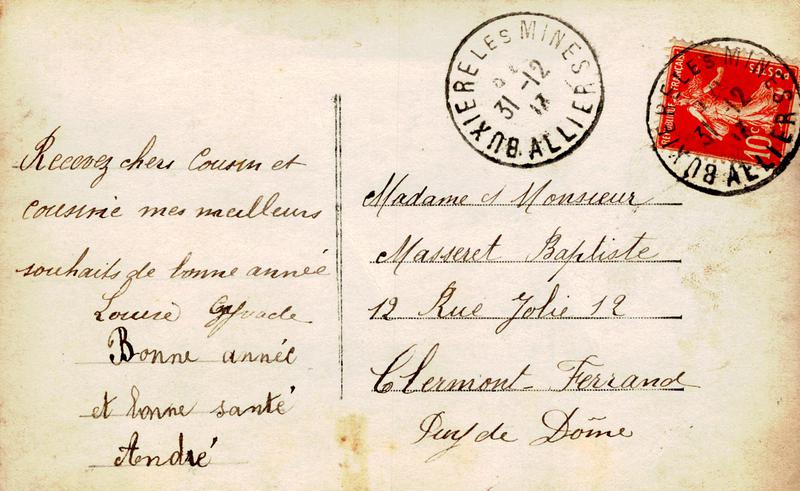 Recevez chers Cousin et
cousine mes meilleurs
souhaits de bonne année
Louise
Bonne année
et bonne santé
André
BUXIERE LES MINES
31-12
13
ALLIER
REPUBLIQUE FRANÇAISE
POSTES
10c
BUXIERE LES MINES
31-12
13
ALLIER
Madame et Monsieur
Masseret Baptiste
12 Rue Jolie 12
Clermont-Ferrand
Puy de Dôme